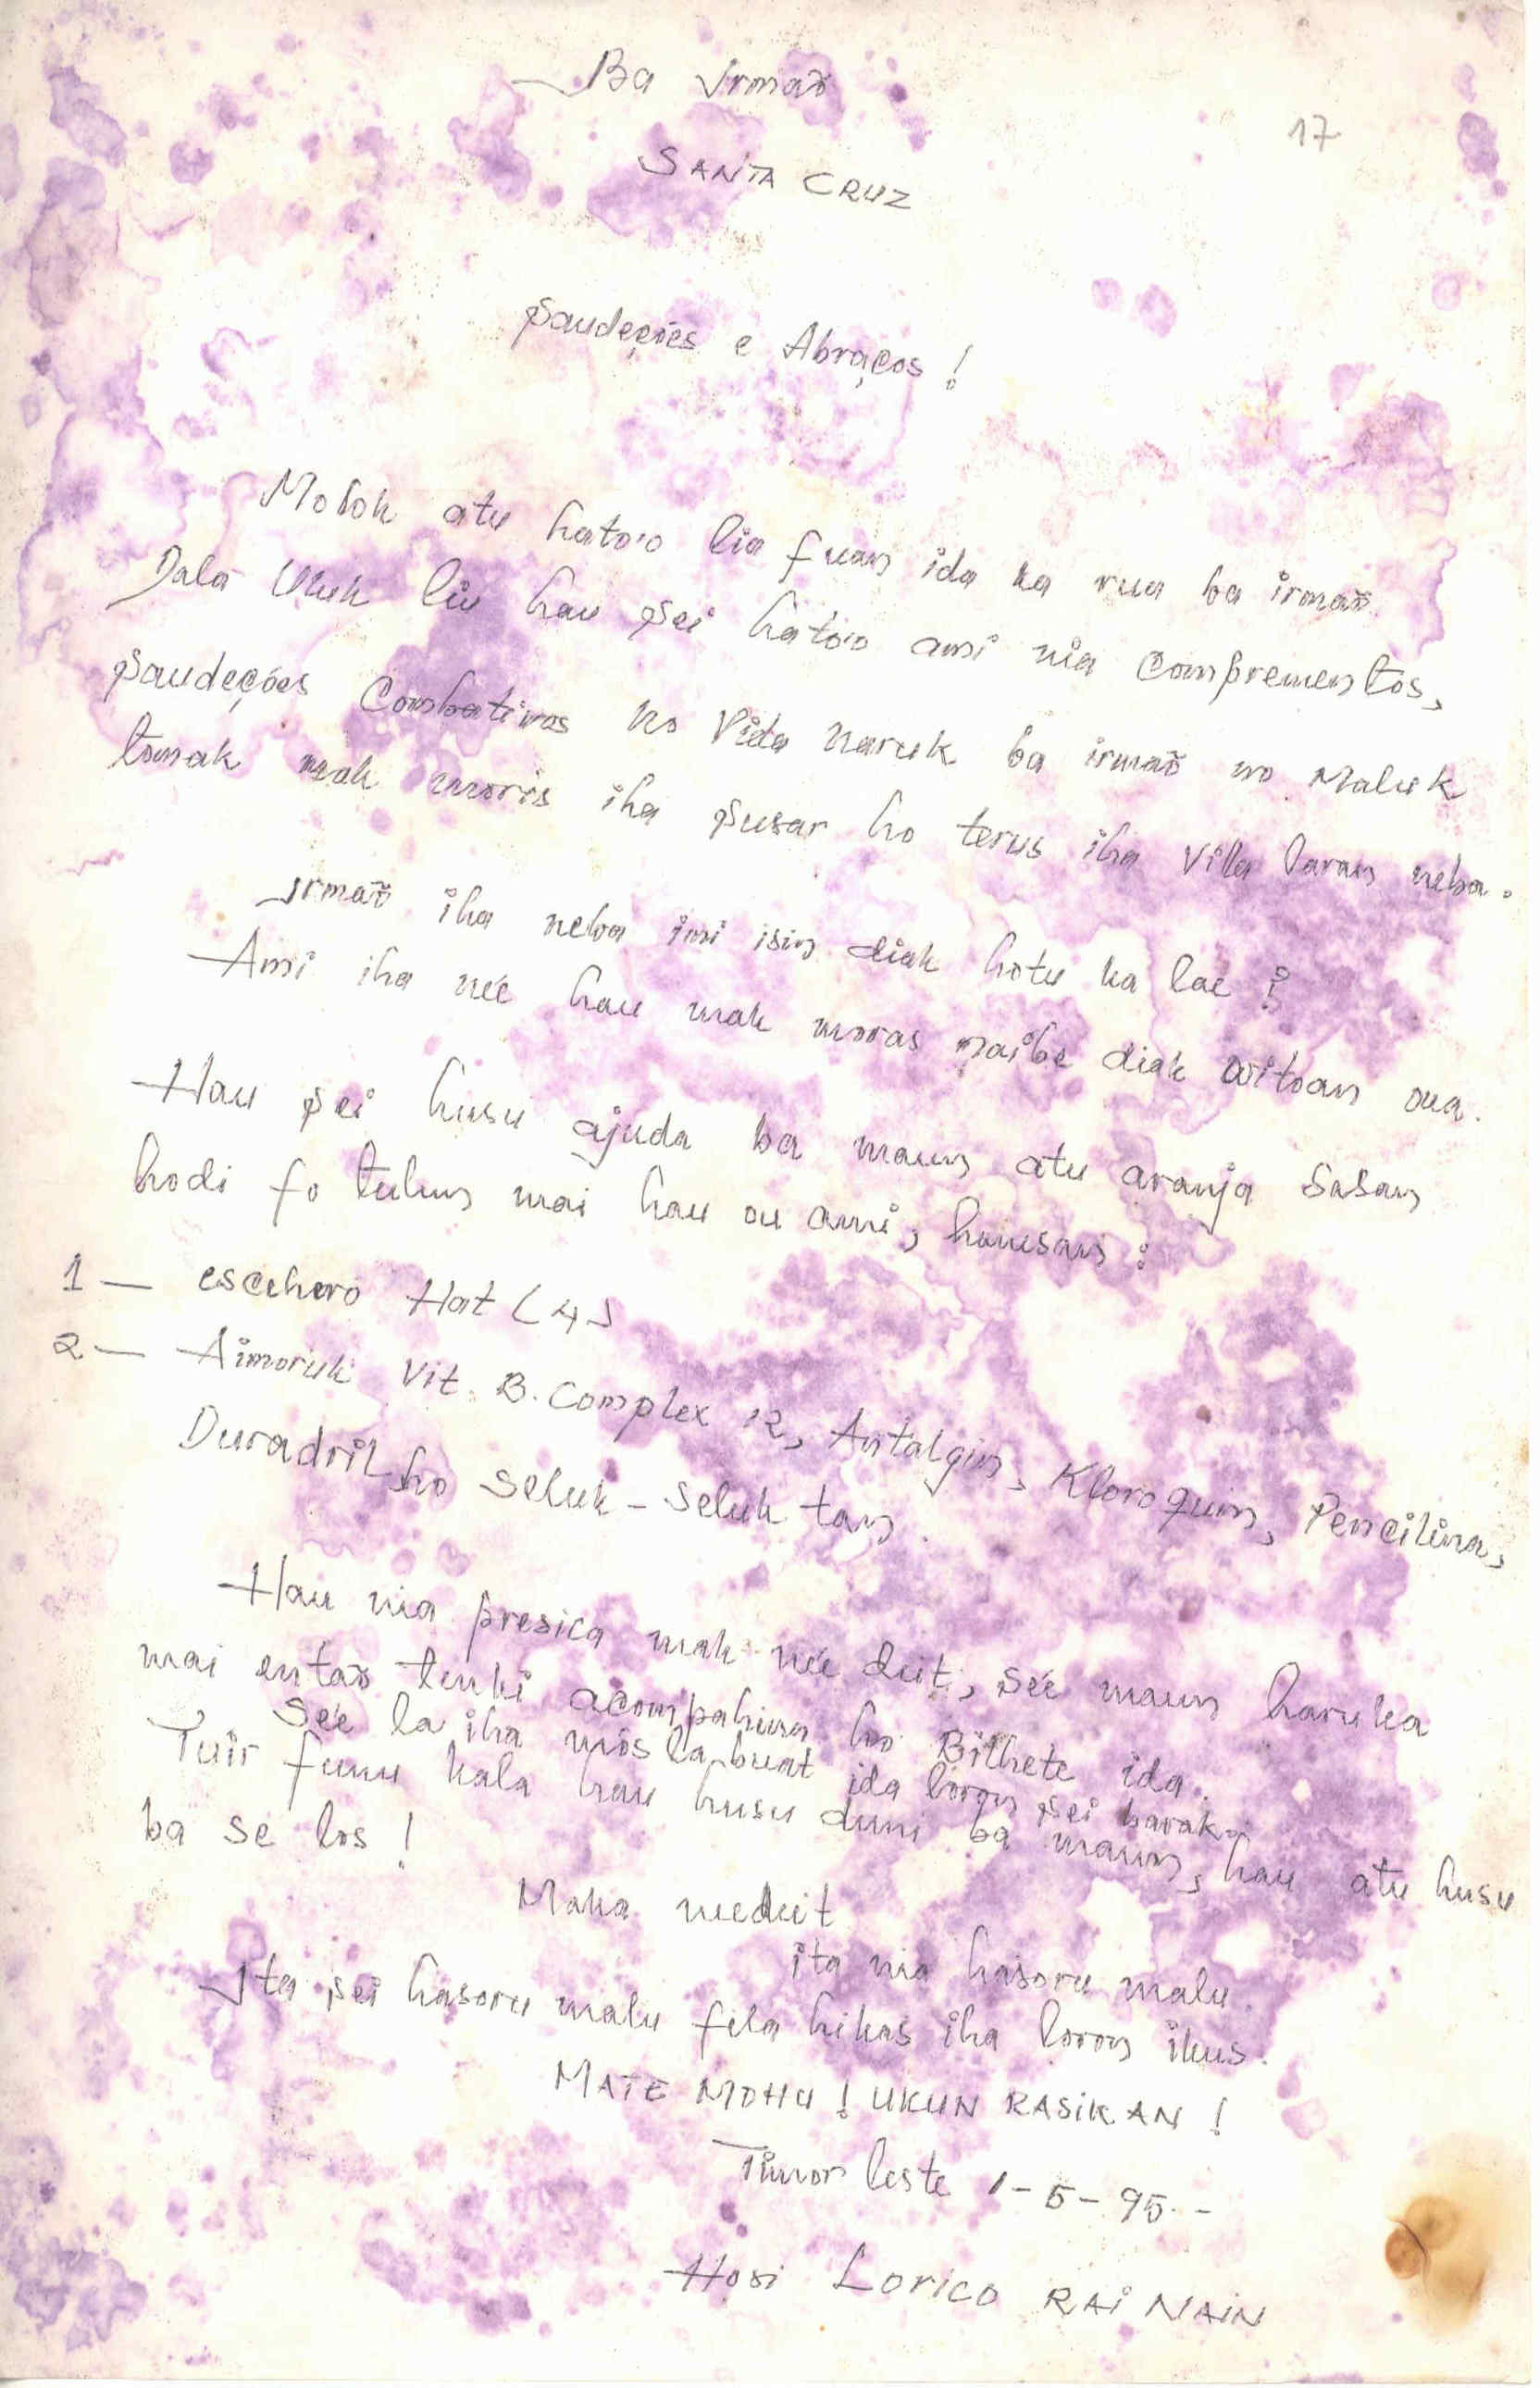 Ba Irmaõ
17
SANTA CRUZ
Saudeções e Abraços !
Molok atu hato'o lia fuan ida ka rua ba irmaõ
Dala Uluk liu hau sei hato'o ami nia comprementos,
Saudeções Combativos ho Vida naruk ba irmaõ no Maluk
tomak mak moris iha susar ho terus iha Villa laran neba.
Irmaõ iha neba imi isin diak hotu ka lae ?
Ami iha née hau mak moras maibe diak oitoan ona.
Hau sei husu ajuda ba maun atu aranja sasan
hodi fo tulun mai hau ou ami, hanesan :
1 — Hat (4)
2 — Aimoruk Vit. B. Complex 12, Antalgin, Kloroquin, Pencilina,
Duradril ho Seluk - Seluk tan.
Hau nia presica mak née deit, sée maun haruka
mai entaõ tenki acompahina ho Bilhete ida.
Sée la iha mós la buat ida loron sei barak.
Tuir funu kala hau husu duni ba maun, hau atu husu
ba se los !
Maka needeit
ita nia hasoru malu.
Ita sei hasoru malu fila hikas iha loron ikus.
MATE MOHU ! UKUN RASIKAN !
Timor leste 1-5-95.-
Hosi LORICO RAI NAIN